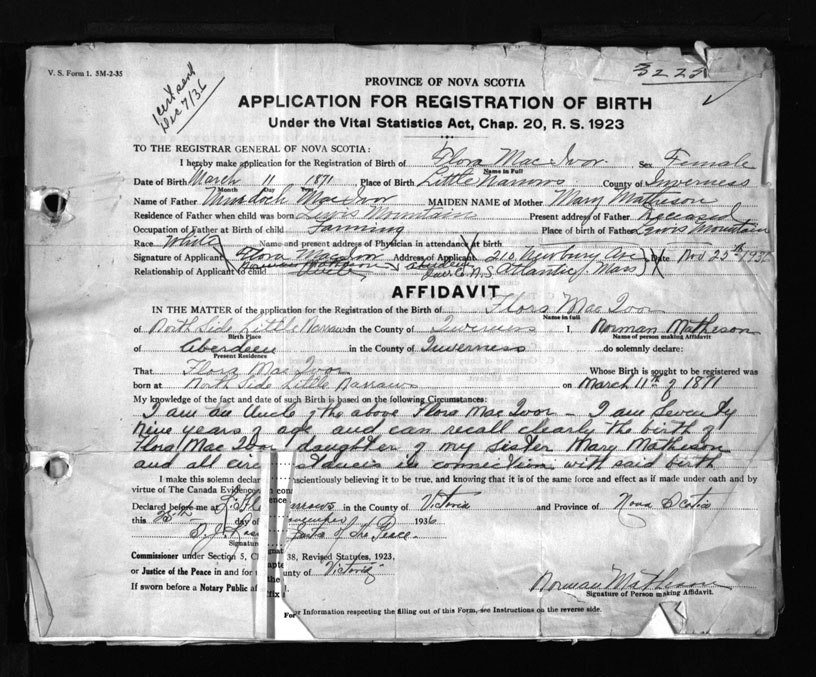 V. S. Form 1. 5M-2-35
3225
Cert sent
Dec 7/36
PROVINCE OF NOVA SCOTIA
APPLICATION FOR REGISTRATION OF BIRTH
Under the Vital Statistics Act, Chap. 20, R. S. 1923
TO THE REGISTRAR GENERAL OF NOVA SCOTIA:
I hereby make application for the Registration of Birth of Flora Mac Ivor Sex Female
Name in Full
Date of Birth March 11 1871 Place of Birth Little Narrows County of Inverness
Month Day Year
Name of Father Murdoch MacIvor MAIDEN NAME of Mother Mary Matheson
Residence of Father when child was born Lewis Mountain Present address of Father Deceased
Occupation of Father at Birth of child Farming Place of birth of Father Lewis Mountain
Race White Name and present address of Physician in attendance at birth
Signature of Applicant Flora MacIvor Address of Applicant 210 Newbury Ave Date Nov 25th 1936
Norman Matheson Aberdeen
Relationship of Applicant to child Uncle Inver Co. N.S Atlantic, Mass
AFFIDAVIT
IN THE MATTER of the application for the Registration of the Birth of Flora Mac Ivor
Name in full
of North Side Little Narrows in the County of Inverness I, Norman Matheson
Birth Place Name of person making Affidavit
of Aberdeen in the County of Inverness do solemnly declare:
Present Residence
That Flora Mac Ivor Whose Birth is sought to be registered was
born at North Side Little Narrows on March 11th of 1871
My knowledge of the fact and date of such Birth is based on the following Circumstances:
I am an Uncle of the above Flora Mac Ivor - I am Seventy
nine years of age and can recall clearly the birth of
Flora Mac Ivor daughter of my sister Mary Matheson
and all circumstances in connection with said birth
I make this solemn declar scientiously believing it to be true, and knowing that it is of the same force and effect as if made under oath and by
virtue of The Canada Evidence
Declared before me at Narrows in the County of Victoria and Province of Nova Scotia
this 25th day of November 1936
Justice of the Peace
Signature
Commissioner under Section 5, C 38, Revised Statutes, 1923,
or Justice of the Peace in and for County of Victoria
If sworn before a Notary Public af
Norman Matheson
Signature of Person making Affidavit.
For Information respecting the filling out of this Form, see Instructions on the reverse side.